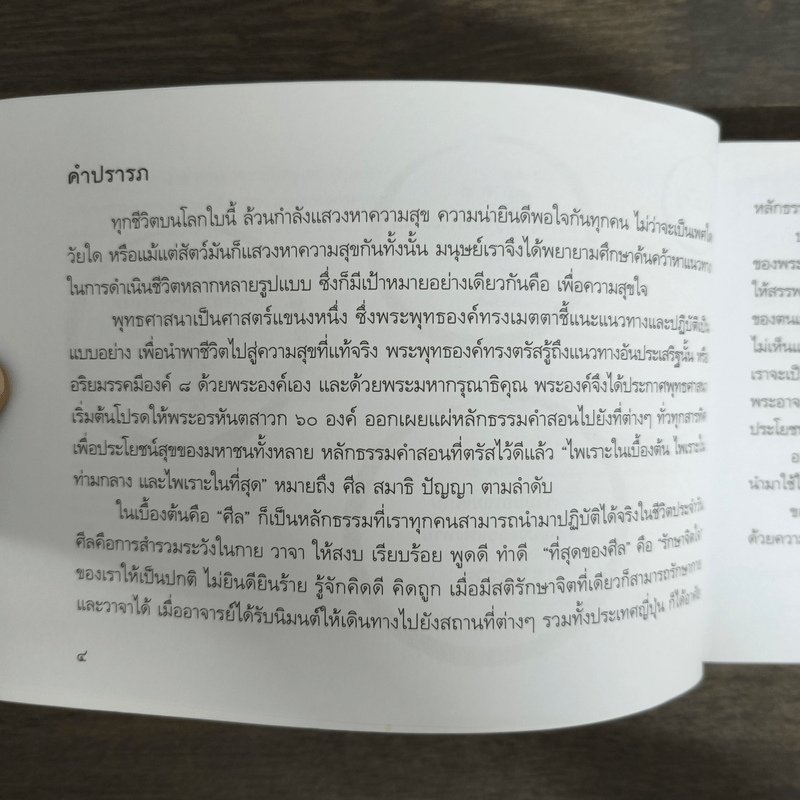 คำปรารภ
ทุกชีวิตบนโลกใบนี้ ล้วนกำลังแสวงหาความสุข ความน่ายินดีพอใจกันทุกคน ไม่ว่าจะเป็นเพศใด
วัยใด หรือแม้แต่สัตว์มันก็แสวงหาความสุขกันทั้งนั้น มนุษย์เราจึงได้พยายามศึกษาค้นคว้าหาแนวทาง
ในการดำเนินชีวิตหลากหลายรูปแบบ ซึ่งก็มีเป้าหมายอย่างเดียวกันคือ เพื่อความสุขใจ
พุทธศาสนาเป็นศาสตร์แขนงหนึ่ง ซึ่งพระพุทธองค์ทรงเมตตาชี้แนะแนวทางและปฏิบัติเป็น
แบบอย่าง เพื่อนำพาชีวิตไปสู่ความสุขที่แท้จริง พระพุทธองค์ทรงตรัสรู้ถึงแนวทางอันประเสริฐนั้น หรือ
อริยมรรคมีองค์ ๘ ด้วยพระองค์เอง และด้วยพระมหากรุณาธิคุณ พระองค์จึงได้ประกาศพุทธศาสนา
เริ่มต้นโปรดให้พระอรหันตสาวก ๖๐ องค์ ออกเผยแผ่หลักธรรมคำสอนไปยังที่ต่างๆ ทั่วทุกสารทิศ
เพื่อประโยชน์สุขของมหาชนทั้งหลาย หลักธรรมคำสอนที่ตรัสไว้ดีแล้ว “ไพเราะในเบื้องต้น ไพเราะใน
ท่ามกลาง และไพเราะในที่สุด” หมายถึง ศีล สมาธิ ปัญญา ตามลำดับ
ในเบื้องต้นคือ “ศีล” ก็เป็นหลักธรรมที่เราทุกคนสามารถนำมาปฏิบัติได้จริงในชีวิตประจำวัน
ศีลคือการสำรวมระวังในกาย วาจา ให้สงบ เรียบร้อย พูดดี ทำดี “ที่สุดของศีล” คือ “รักษาจิตใจ”
ของเราให้เป็นปกติ ไม่ยินดียินร้าย รู้จักคิดดี คิดถูก เมื่อมีสติรักษาจิตที่เดียวก็สามารถรักษากาย
และวาจาได้ เมื่ออาจารย์ได้รับนิมนต์ให้เดินทางไปยังสถานที่ต่างๆ รวมทั้งประเทศญี่ปุ่น ก็ได้อาศัย
๔
หลักธรร
ของพระ
ให้สรรพ
ของตนเ
ไม่เห็นแ
เราจะเป็
พระอาจ
ประโยชน
อ
นำมาใช้ใ
ข
ด้วยความ